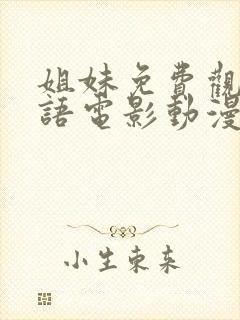 姐妹免費觀
語電影動漫
小生東來